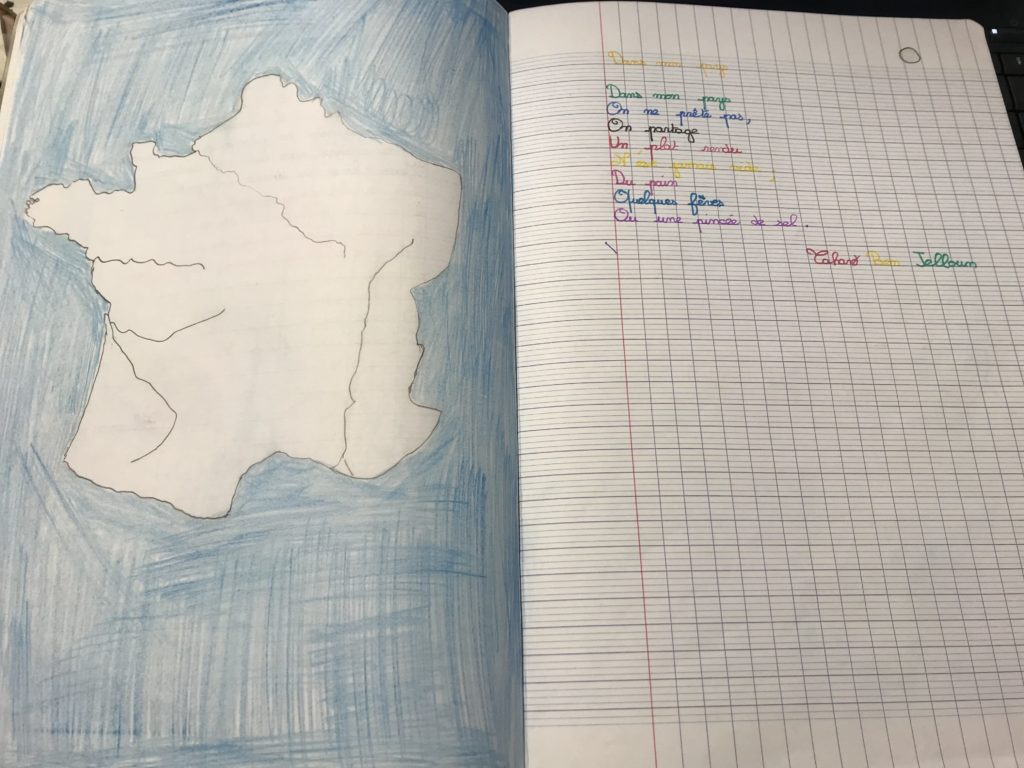 Dans mon pays
Dans mon pays
On ne prête pas,
On partage
Un plat rendu
N'est jamais vide,
Du pain
Quelques fèves
Ou une pincée de sel.
Tahar Ben Jelloun